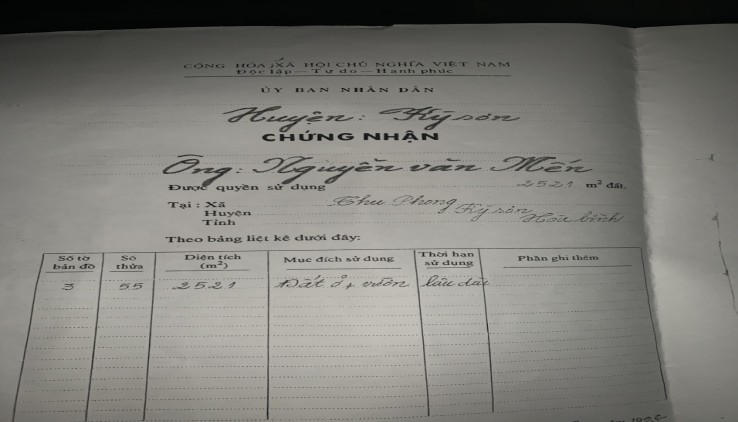 CỘNG HÒA XÃ HỘI CHỦ NGHĨA VIỆT NAM
Độc lập — Tự do — Hạnh phúc
ỦY BAN NHÂN DÂN
Huyện: Kỳ sơn
CHỨNG NHẬN
Ông: Nguyễn văn Mến
Được quyền sử dụng 2521 m² đất.
Tại : Xã Thu Phong
Huyện Kỳ sơn
Tỉnh Hòa bình
Theo bảng liệt kê dưới đây:
Số tờ bản đồ Số thửa Diện tích (m²) Mục đích sử dụng Thời hạn sử dụng Phần ghi thêm
3 55 2521 Đất ở + vườn lâu dài